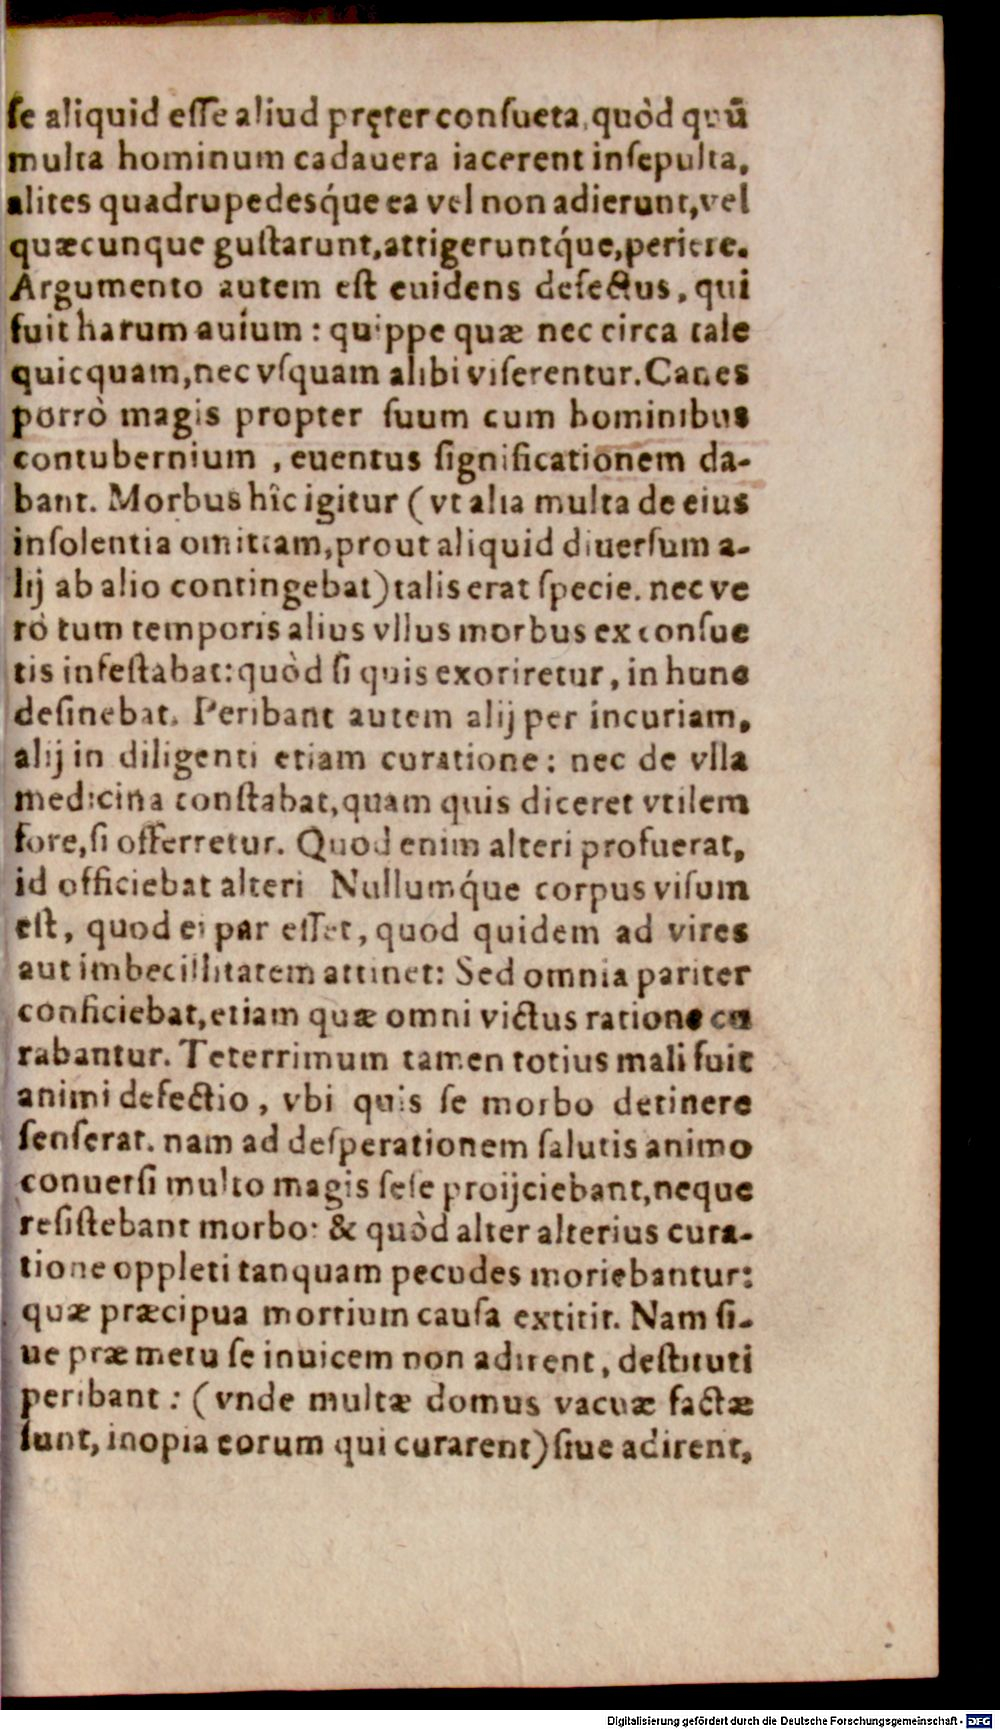 ſe aliquid eſſe aliud pręter conſueta, quòd quū
multa hominum cadauera iacerent inſepulta,
alites quadrupedesq́ue ea vel non adierunt, vel
quæcunque guſtarunt, attigeruntq́ue, periere.
Argumento autem eſt euidens defectus, qui
fuit harum auium: quippe quæ nec circa tale
quicquam, nec vſquam alibi viſerentur. Canes
porrò magis propter ſuum cum hominibus
contubernium, euentus ſignificationem da-
bant. Morbus hîc igitur (vt alia multa de eius
inſolentia omittam, prout aliquid diuerſum a-
lij ab alio contingebat) talis erat ſpecie. nec ve
rò tum temporis alius vllus morbus ex conſue
tis infeſtabat: quòd ſi quis exoriretur, in hunc
deſinebat. Peribant autem alij per incuriam,
alij in diligenti etiam curatione: nec de vlla
medicina conſtabat, quam quis diceret vtilem
fore, ſi offerretur. Quod enim alteri profuerat,
id officiebat alteri Nullumq́ue corpus viſum
eſt, quod ei par eſſet, quod quidem ad vires
aut imbecillitatem attinet: Sed omnia pariter
conficiebat, etiam quæ omni victus ratione cu
rabantur. Teterrimum tamen totius mali fuit
animi defectio, vbi quis ſe morbo detinere
ſenſerat. nam ad deſperationem ſalutis animo
conuerſi multo magis ſeſe proijciebant, neque
reſiſtebant morbo: & quòd alter alterius cura-
tione oppleti tanquam pecudes moriebantur:
quæ præcipua mortium cauſa extitit. Nam ſi-
ue præ metu ſe inuicem non adirent, deſtituti
peribant: (vnde multæ domus vacuæ factæ
ſunt, inopia eorum qui curarent) ſiue adirent,
Digitalisierung gefördert durch die Deutsche Forschungsgemeinschaft - DFG